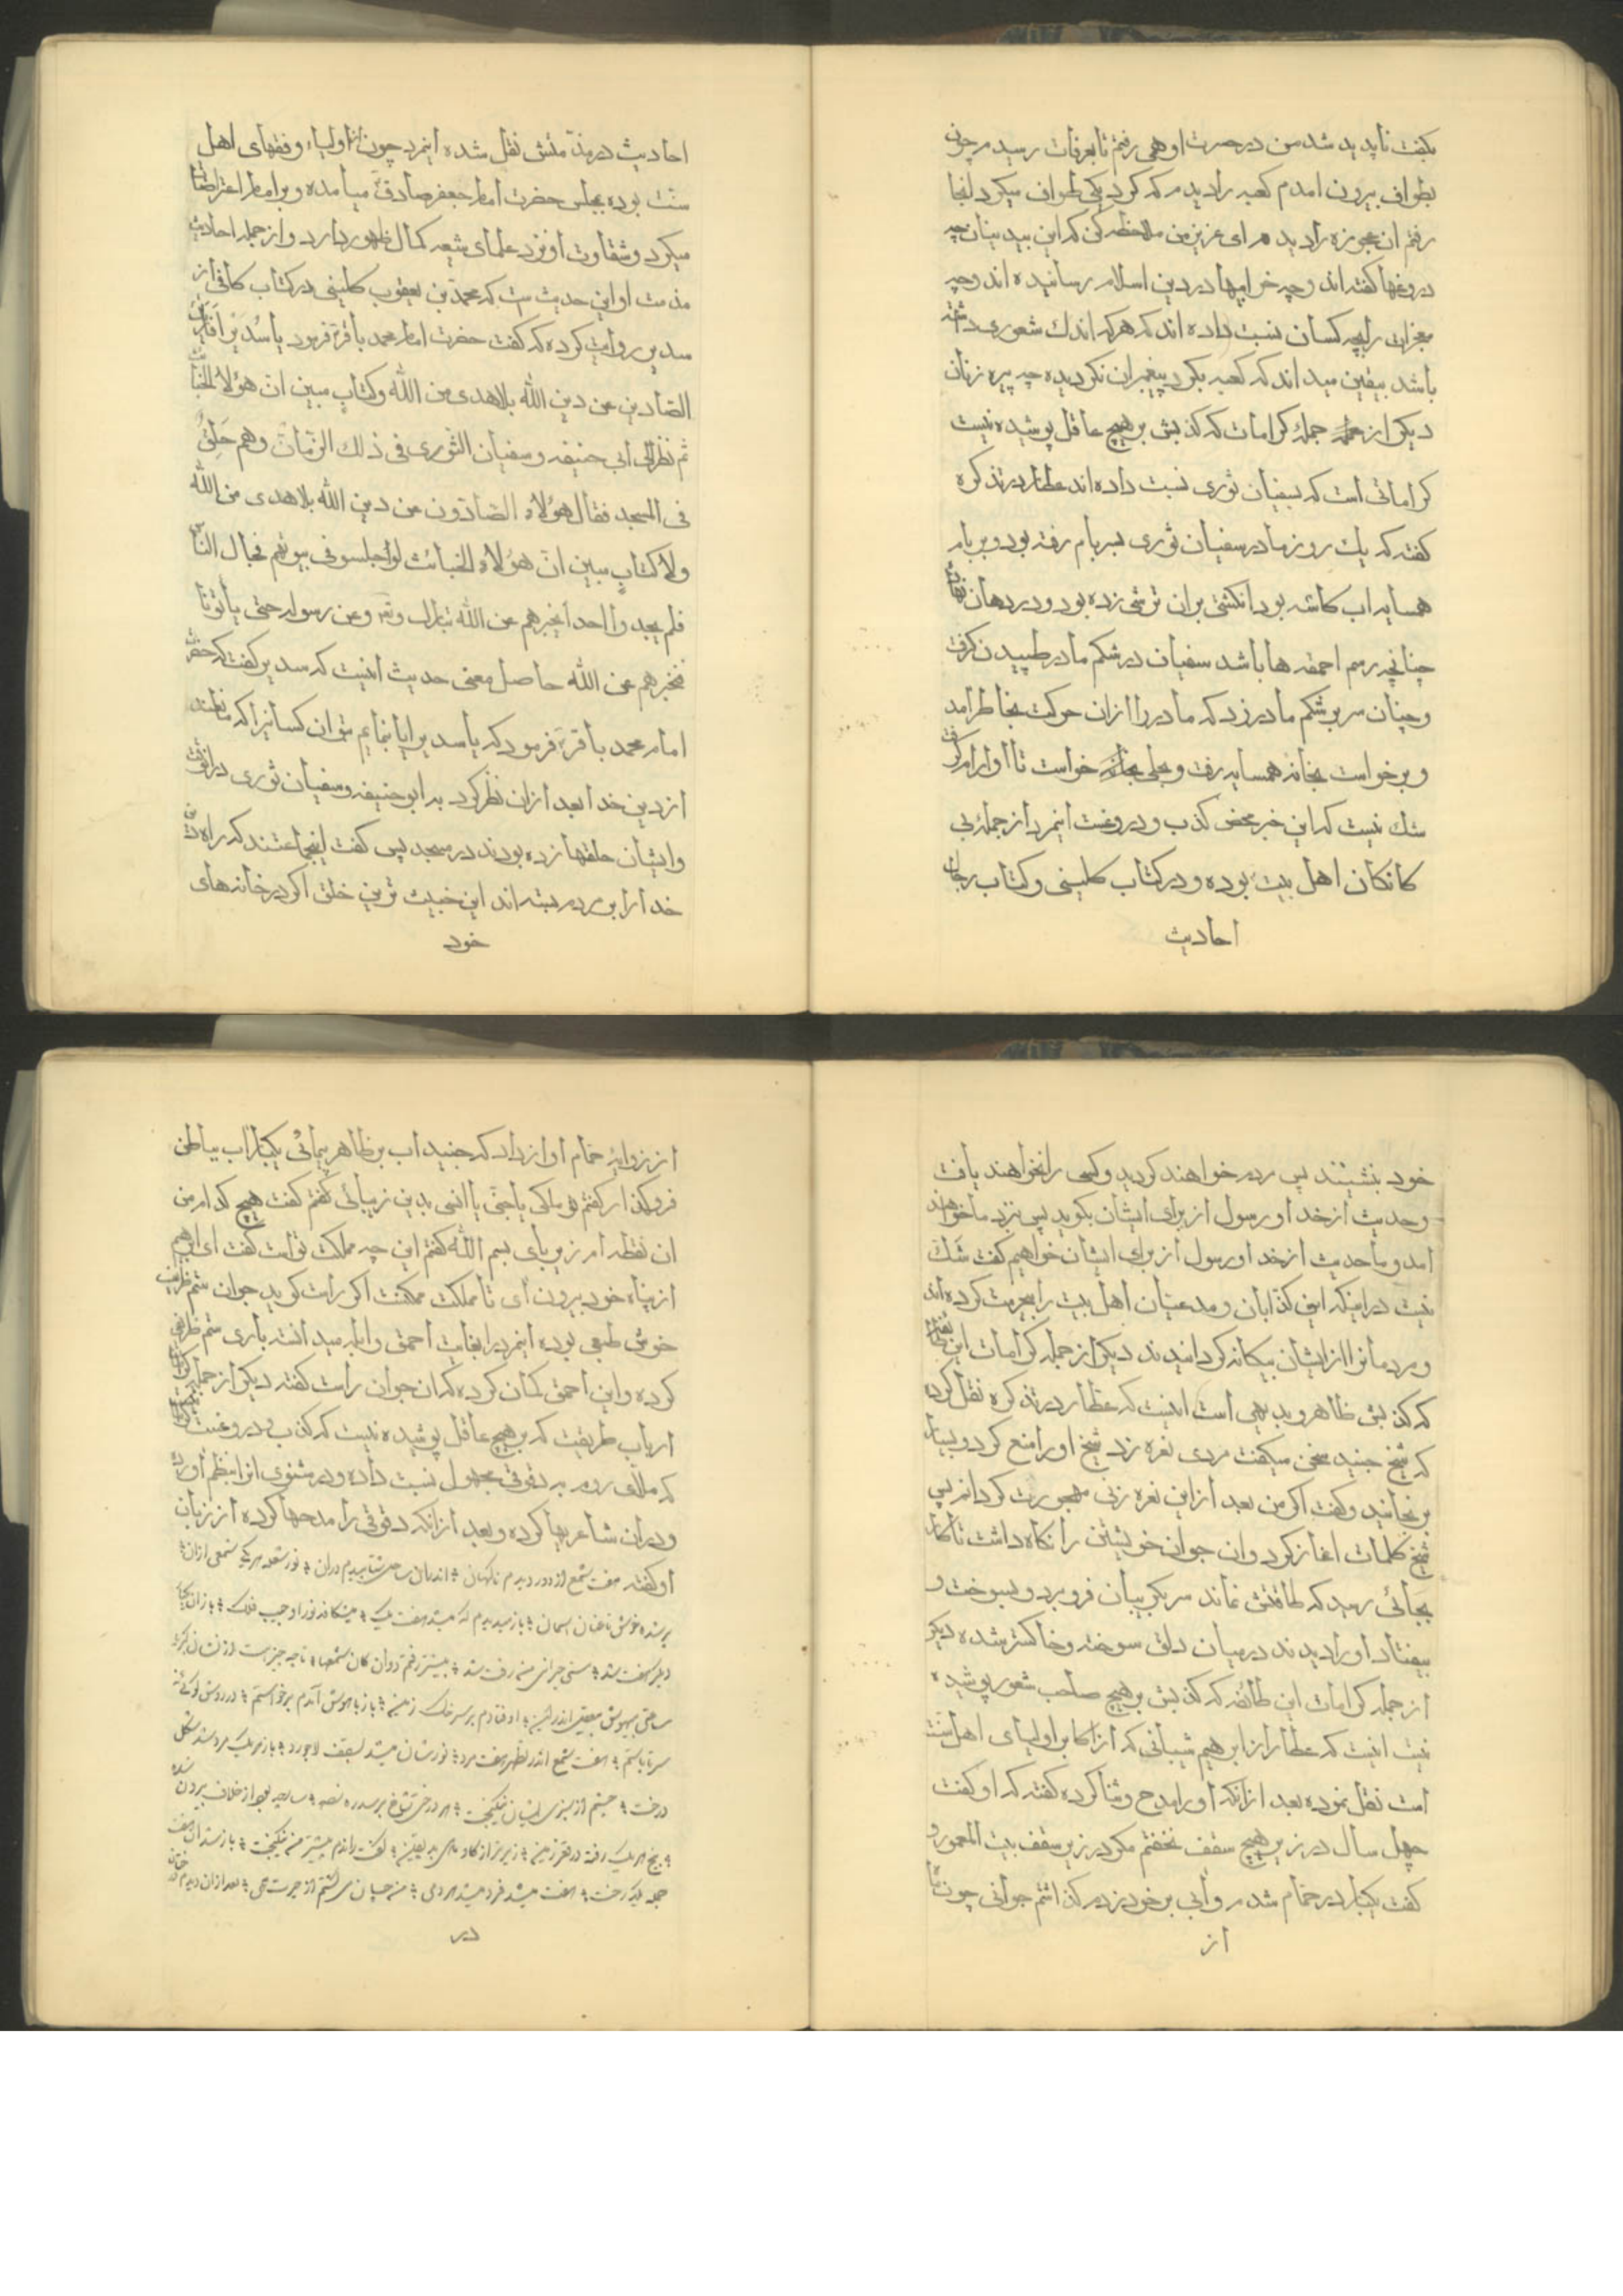 بگفت ناپدید شد من در حسرت او همی رفتم تا بعرفات رسیدم چون
بطواف بیرون امدم کعبه را دیدم که کرد یکی طواف میکرد انجا
رفتم ان عجوزه را دیدم ای عزیز من ملاحظه کن که این بیدینان چه
دروغها کفته اند و چه خرابیها در دین اسلام رسانیده اند و چه
معجزات را بچه کسان نسبت داده اند که هر که اندك شعوری داشته
باشد بیقین میداند که کعبه بکرد پیغمبران نکردیده چه پیره زنان
دیکر از جمله کرامات که کذبش بر هیچ عاقل پوشیده نیست
کراماتی است که بسفیان ثوری نسبت داده اند عطار در تذکره
کفته که یك روز مادر سفیان ثوری ببر بام رفته بود و بر بام
همسایه اب کاسه بود انکشتی بران ترشی زده بود و در دهان نهاد
چنانچه رسم احمقه ها باشد سفیان در شکم مادر طپیدن کرفت
و چنان سر بر شکم مادر زد که مادر را ازان حرکت بخاطر امد
و برخواست بخانه همسایه رفت و بحلی خواست تا او ارام کرفت
شك نیست که این خبر محض کذب و دروغست اینمرد از جمله بی
کانکان اهل بیت بوده و در کتاب کلینی و کتاب رجال
احادیث
احادیث در مذمتش نقل شده اینمرد چون از اولیاء و فقهای اهل
سنت بوده بمجلس حضرت امام جعفر صادق میامده و بر امام اعتراضات
میکرد و شقاوت او نزد علمای شیعه کمال ظهور دارد و از جمله احادیث
مذمت او این حدیث ست که محمد بن یعقوب کلینی در کتاب کافی از
سدیر روایت کرده که کفت حضرت امام محمد باقر فرمود یا سُدَیْر
الصّادین عن دین الله بلاهدی من الله و کتاب مبین انّ هؤلاء الخبائث
ثم نظر الی ابی حنیفه و سفیان الثوری فی ذلك الزّمان و هم حَلَقٌ
فی المسجد فقال هؤلاء الصّادون عن دین الله بلاهدی من الله
ولا کتاب مبین انّ هؤلاء الخبائث لو اجلسو فی بیوتهم فجال الناس
فلم یجدوا احدا یخبرهم عن الله تبارك و تعو عن رسوله حتی یاتونا
فخبرهم عن الله حاصل معنی حدیث اینست که سدیر کفت که حضرت
امام محمد باقر فرمود که یا سدیر ایا بنمایم بتو ان کسانیرا که
از دین خدا بعد ازان نظر کرد به ابو حنیفه و سفیان ثوری درانوقت
و ایشان حلقها زده بودند در مسجد پس کفت اینجماعتند که راه دین
خدا را بر مردم بسته اند این خبیث ترین خلق اکر در خانه های
خود
خود بنشینند پس مردم خواهند کردید و کسی را نخواهند یافت
و حدیث از خدا و رسول از برای ایشان بکوید پس نزد ما خواهند
امد و ما حدیث از خدا و رسول از برای ایشان خواهیم کفت شك
نیست در اینکه این کذابان و مدعیان اهل بیت را بیحرمت کرده اند
و مردمانرا از ایشان بیکانه کردانیدند دیکر از جمله کرامات این طایفه
که کذبش ظاهر و بدیهی است اینست که عطار در تذکره نقل کرده
که شیخ جنید سخن میکفت مردی نعره زد شیخ او را منع کرد و بسیار
برنجانید و کفت اکر من بعد ازاین نعره زنی مهجورت کردانم پس
شیخ کلمات اغاز کرد و ان جوان خویشتن را نکاه داشت تا کار
بجائی رسید که طاقتش نماند سر بکریبان فرو برد و بسوخت و
بیفتاد او را دیدند در میان دلق سوخته و خاکستر شده دیکر
از جمله کرامات این طائفه که کذبش بر هیچ صاحب شعور پوشیده
نیست اینست که عطار از ابرهیم شیبانی که از اکابر اولیای اهل سنت
است نقل نموده بعد ازانکه او را مدح و ثنا کرده کفته که او کفت
چهل سال در زیر هیچ سقف نخفتم مکر در زیر سقف بیت المعمور و
کفت یکبار در حمام شدم و آبی بر خود زدم کذاشتم جوانی چون ماه
از
از زوایهٔ حمام اواز داد که جنید اب بر ظاهر پیمائی یکبار اب بباطن
فرو کذار کفتم تو ملکی یا جنّی یا انسی بدین زیبائی کفتم کفت هیچ کدام من
ان نقطه ام زیر بای بسم الله کفتم این چه مملکت توست کفت ای ابرهیم
از پناه خود بیرون آی تا مملکت ممکنت اکر راست کوید جوان ستم ظریف
خوش طبعی بوده اینمرد را بغایت احمق و ابله میدانسته باری ستم ظریفی
کرده و این احمق کمان کرده که ان جوان راست کفته دیکر از جمله
ارباب طریقت که بر هیچ عاقل پوشیده نیست که کذب و دروغست
که ملای روم به دقوقی مجهول نسبت داده و در مثنوی انرا بنظم اورده
و دران شاعریها کرده و بعد ازانکه دقوقی را مدحها کرده از زبان
او کفته هفت شمع از دور دیدم ناکهان اندران ساحل شتابیدم دران نور شعله هر یکی شمعی ازان
بر شده خوش تا عنان اسمان باز میدیدم که میشد هفت یک میشکافد نور او جیب فلک باز ان یک
دیکر هفت شد مستی حیرانی من زفت شد پیشتر رفتم دوان کان شمعها تا چه چیز است از نشان کبریا
ساعتی بیهوش و بیعقل اندرین اوفتادم بر سر خاک زمین باز با هوش آمدم برخواستم در روش کوئی نه
سر نه پاستم هفت شمع اندر نظر هفت مرد نورشان میشد بسقف لاجورد باز هر یک مرد شد شکل
درخت چشمم از سبزی ایشان نیکبخت هر درختی شاخ بر سدره زده سدره چبود از خلاف بیرون شده
بیخ هر یک رفته در قعر زمین زیرتر از کاو و ماهی بد یقین
در